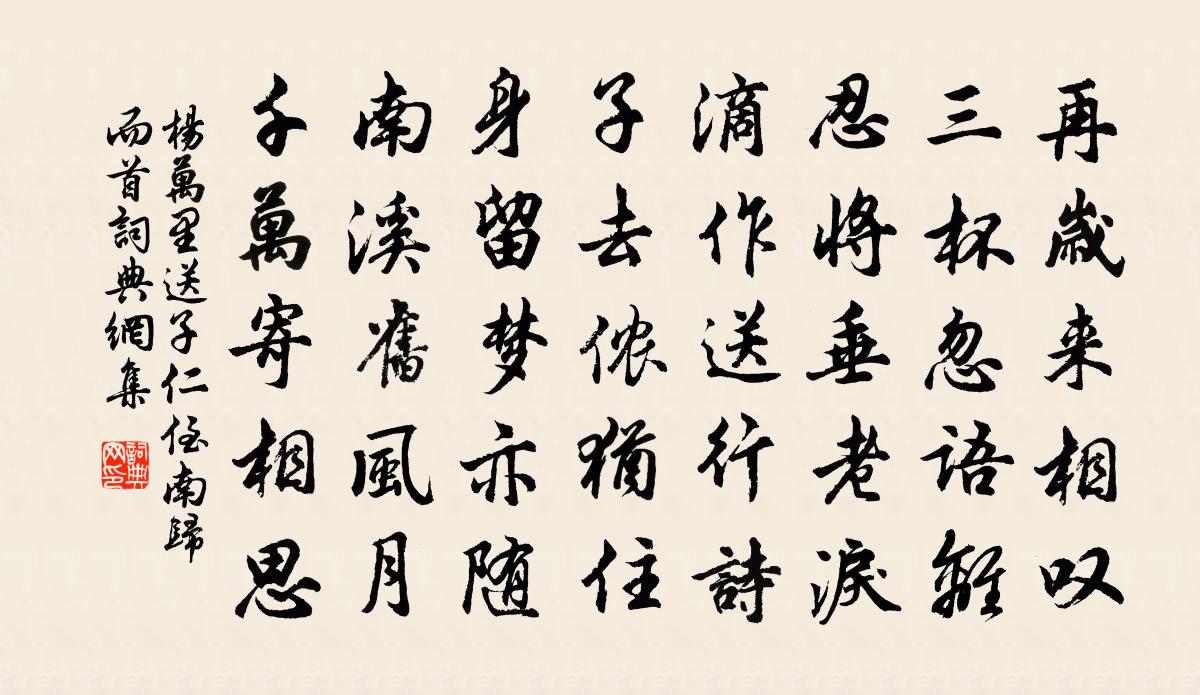 再歲来相叹
三杯忽語離
忍將垂老淚
滴作送行詩
子去侬猶住
身留梦亦随
南溪舊風月
千萬寄相思
楊萬里送子仁侄南歸
而首詞典網集
詞典
网印